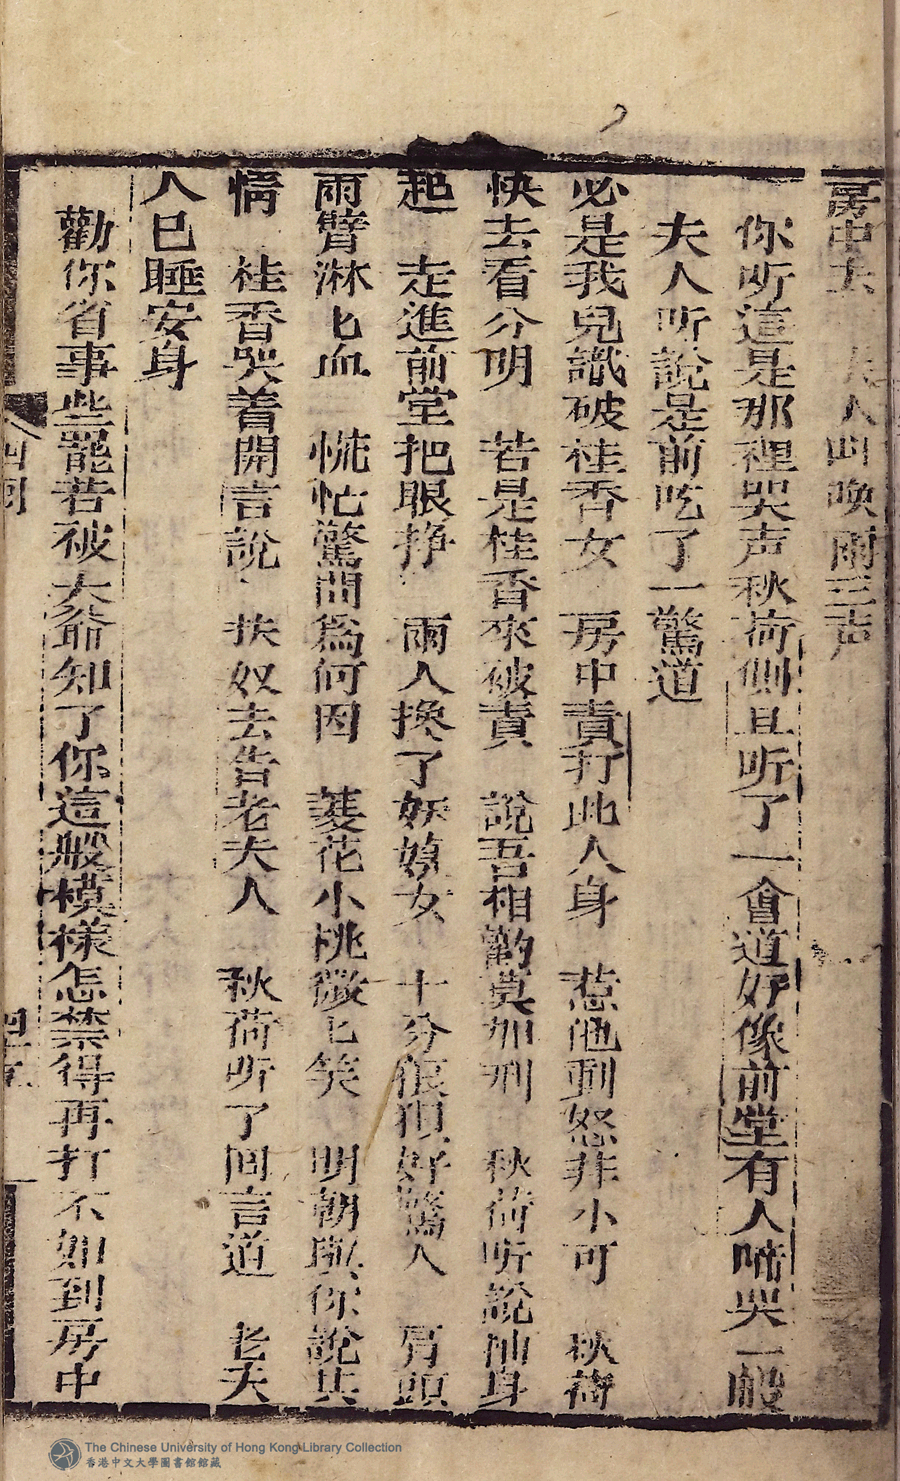 房中去　夫人叫唤兩三声
你听這是那裡哭声秋荷側耳听了一會道好像前堂有人啼哭一般
夫人听說是前吃了一驚道
必是我兒識破桂香女　房中責打此人身　惹他動怒非小可　秋荷
快去看分明　若是桂香來被責　說吾相勸莫加刑　秋荷听說抽身
起　走進前堂把眼挣　兩人換了妖嬈女　十分很狠好驚人　肩頭
兩臂淋匕血　慌忙驚問爲何因　菱花小桃微匕笑　明朝與你說其
情　桂香哭着開言說　扶奴去告老夫人　秋荷听了回言道　老夫
人已睡安身
勸你省事些罷若被大爺知了你這般模樣怎禁得再打不如到房中
四回
The Chinese University of Hong Kong Library Collection
香港中文大學圖書館館藏